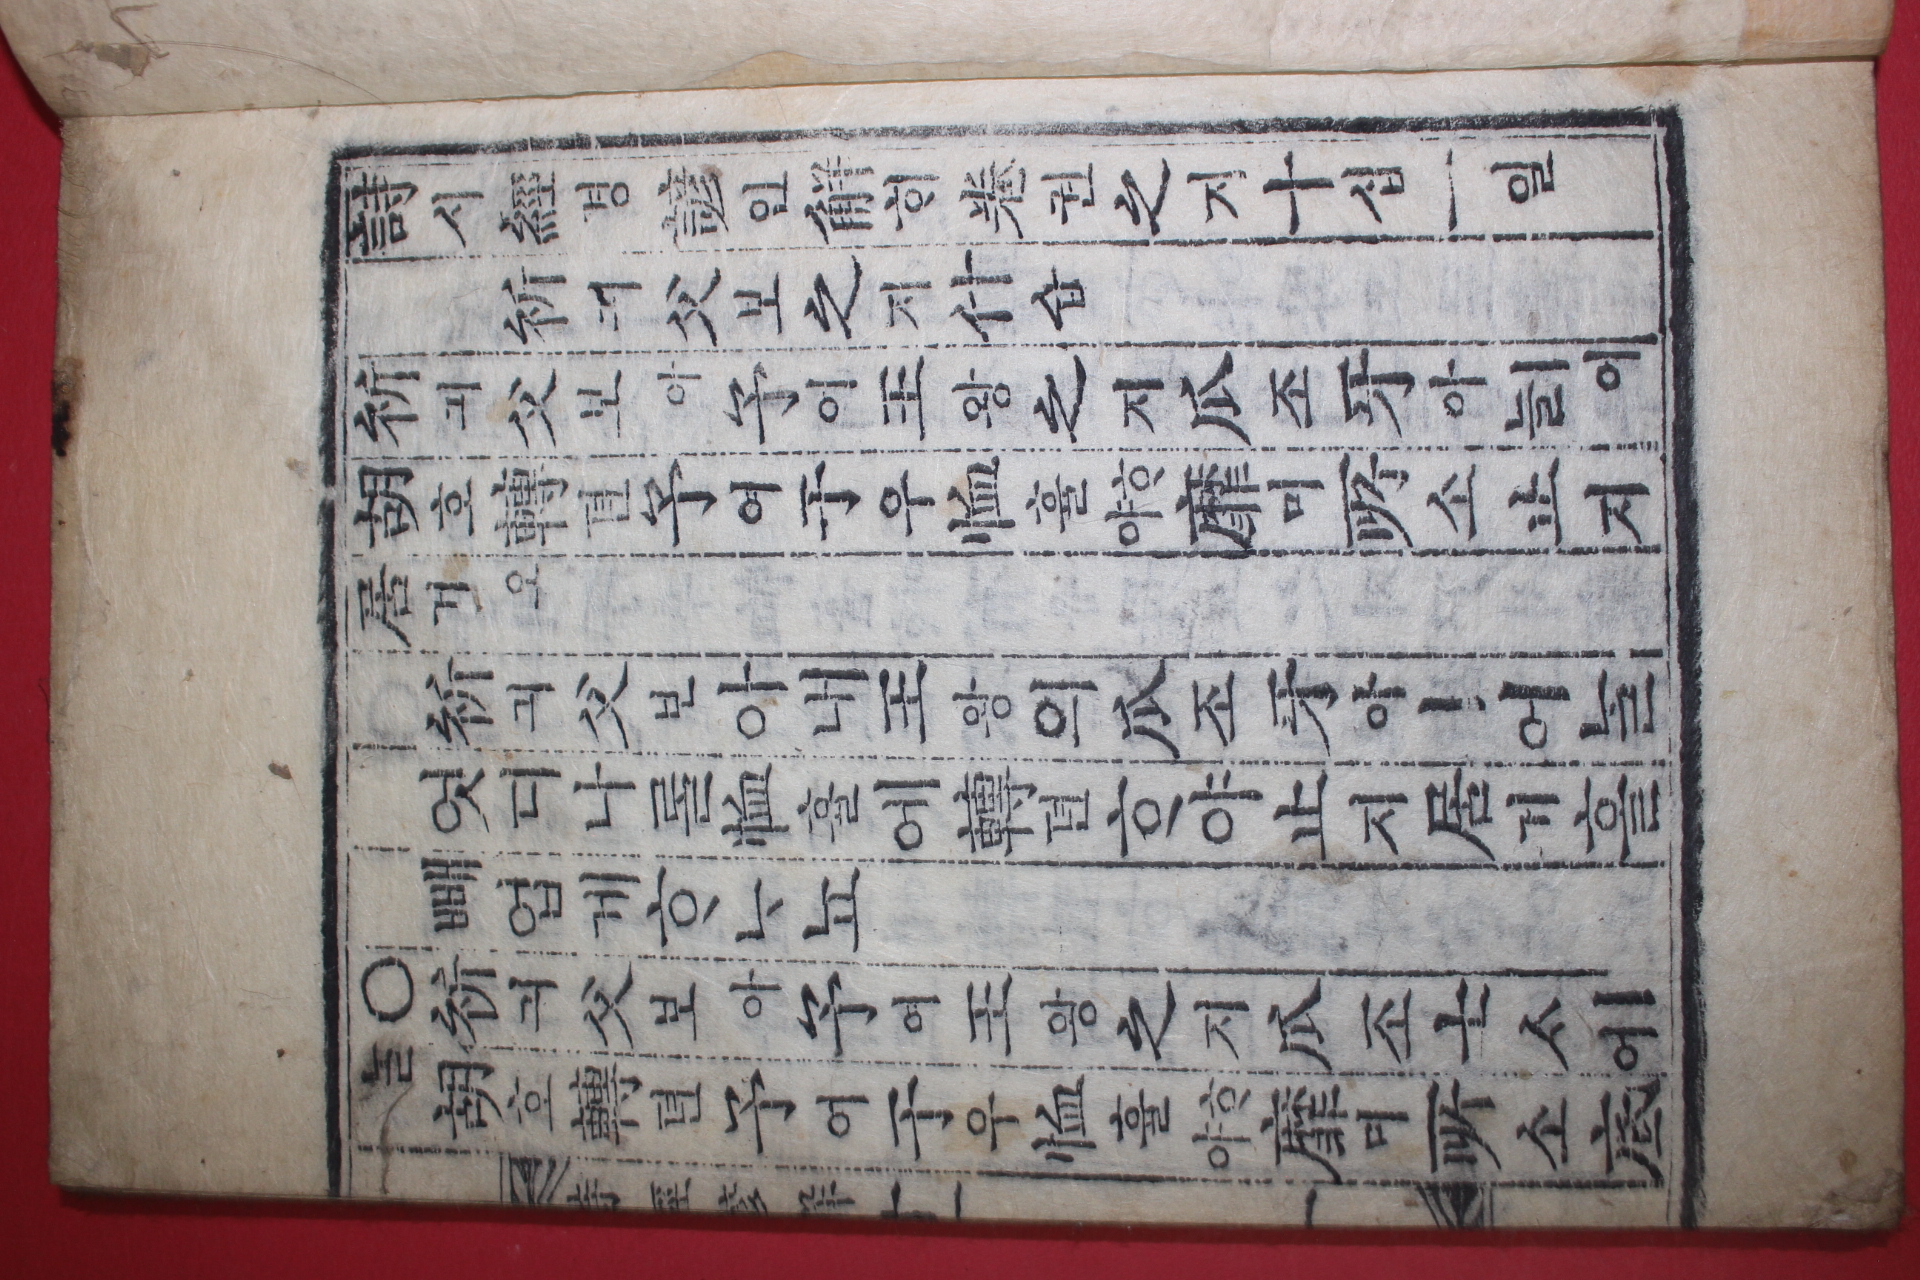 詩시經경諺언解ᄒᆡ卷권之지十십一일
祈긔父보之지什습
祈긔父보아予여王왕之지爪조牙아ㅣ늘에
胡호轉뎐予여于우恤휼ᄒᆞ야靡미所소止지
居거오
祈긔父보아내王왕의爪조牙아ㅣ어늘
엇디나를恤휼에轉뎐ᄒᆞ야止지居거홀
빼업게ᄒᆞᄂᆞ뇨
○祈긔父보아予여王왕之지爪조士ᄉᆞㅣ어늘
胡호轉뎐予여于우恤휼ᄒᆞ야靡미所소底